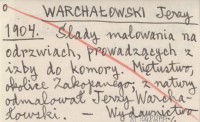 WARCHAŁOWSKI Jerzy
1904. Ślady malowania na
odrzwiach, prowadzących z
izby do komory. Mietustwo,
okolice Zakopanego, z natury
odmalował Jerzy Warcha-
łowski. — Wydawnictwo